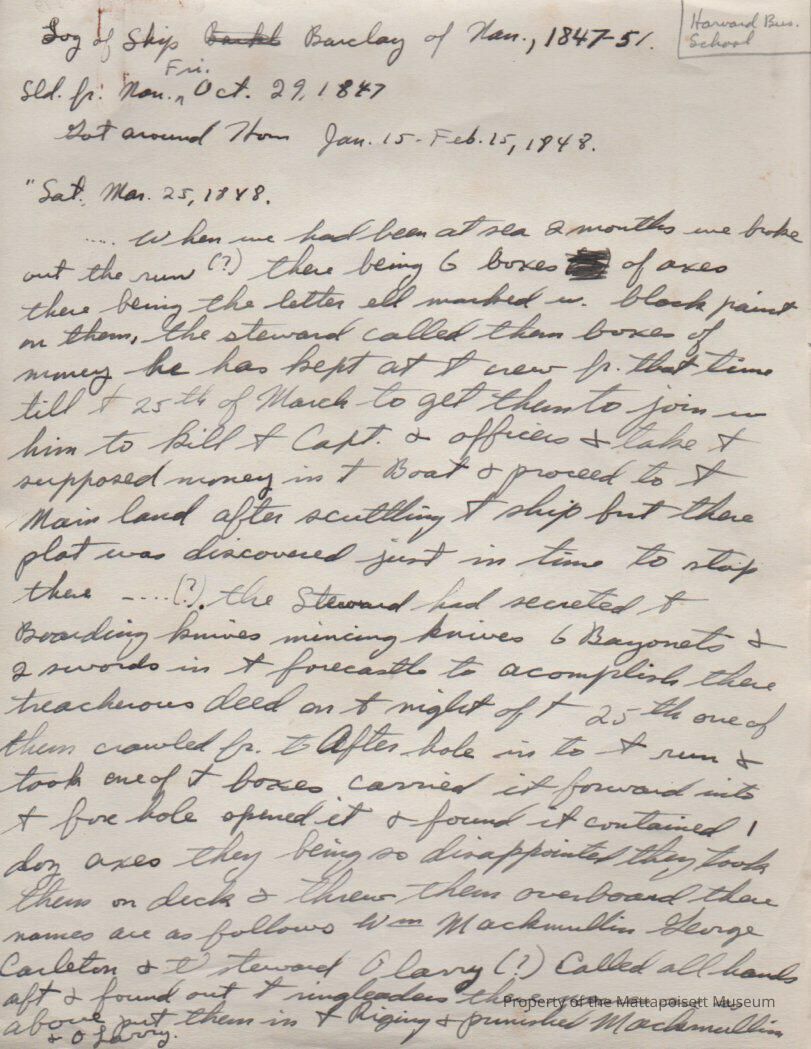 Harvard Bus.
School
Log of Ship Barclay of Nan., 1847-51.
Sld. fr. Nan. Fri. Oct. 29, 1847
Got around Horn Jan. 15-Feb. 15, 1848.
"Sat. Mar. 25, 1848.
.... When we had been at sea 2 months we broke
out the run (?) there being 6 boxes of axes
there being the letter ell marked w. black paint
on them, the steward called them boxes of
money he has kept at t crew fr. that time
till t 25th of March to get them to join w
him to kill t Capt. & officers & take t
supposed money in t Boat & proceed to t
Main land after scuttling t ship but there
plot was discovered just in time to stop
there -....(?). the Steward had secreted t
Boarding knives mincing knives 6 Bayonets &
2 swords in t forecastle to acomplish there
treacherous deed on t night of t 25th one of
them crawled fr. t After hole in to t run &
took one of t boxes carried it forward into
t fore hole opened it & found it contained 1
doz axes they being so disappointed they took
them on deck & threw them overboard there
names are as follows Wm Mackmullin George
Carleton & t steward O larry (?) Called all hands
aft & found out t ringleaders
above put them in t Riging & punished Mackmullin
& O Larry.
Property of the Mattapoisett Museum